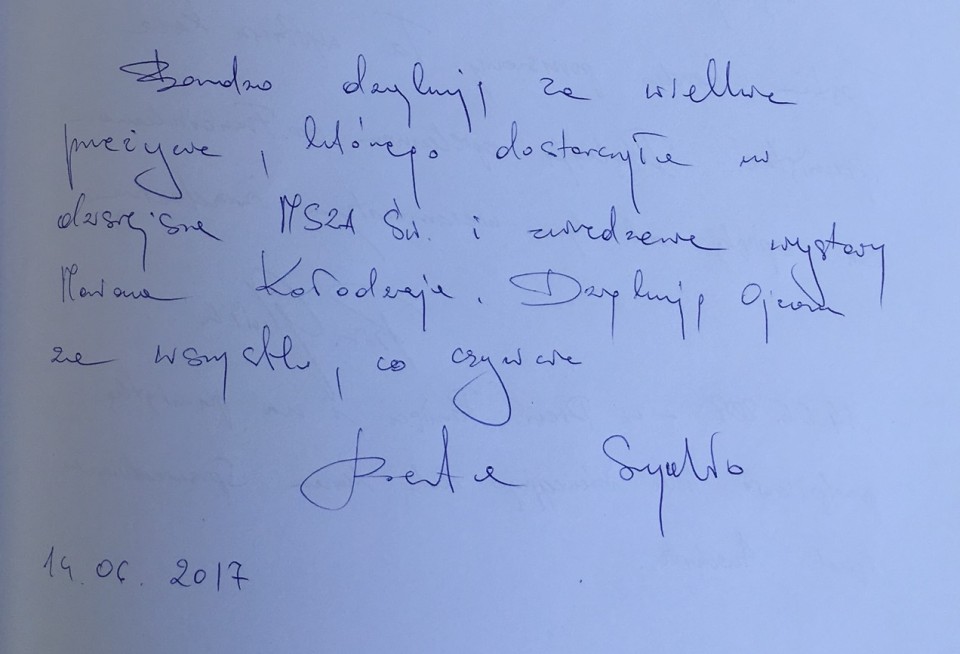 Bardzo dziękuję za wielkie
przeżycie, którego dostarczyła mi
dzisiejsza MSZA Św. i zwiedzenie wystawy
Mariana Kołodzieja. Dziękuję Ojcom
za wszystko, co czynicie
Beata Szydło
14.06.2017